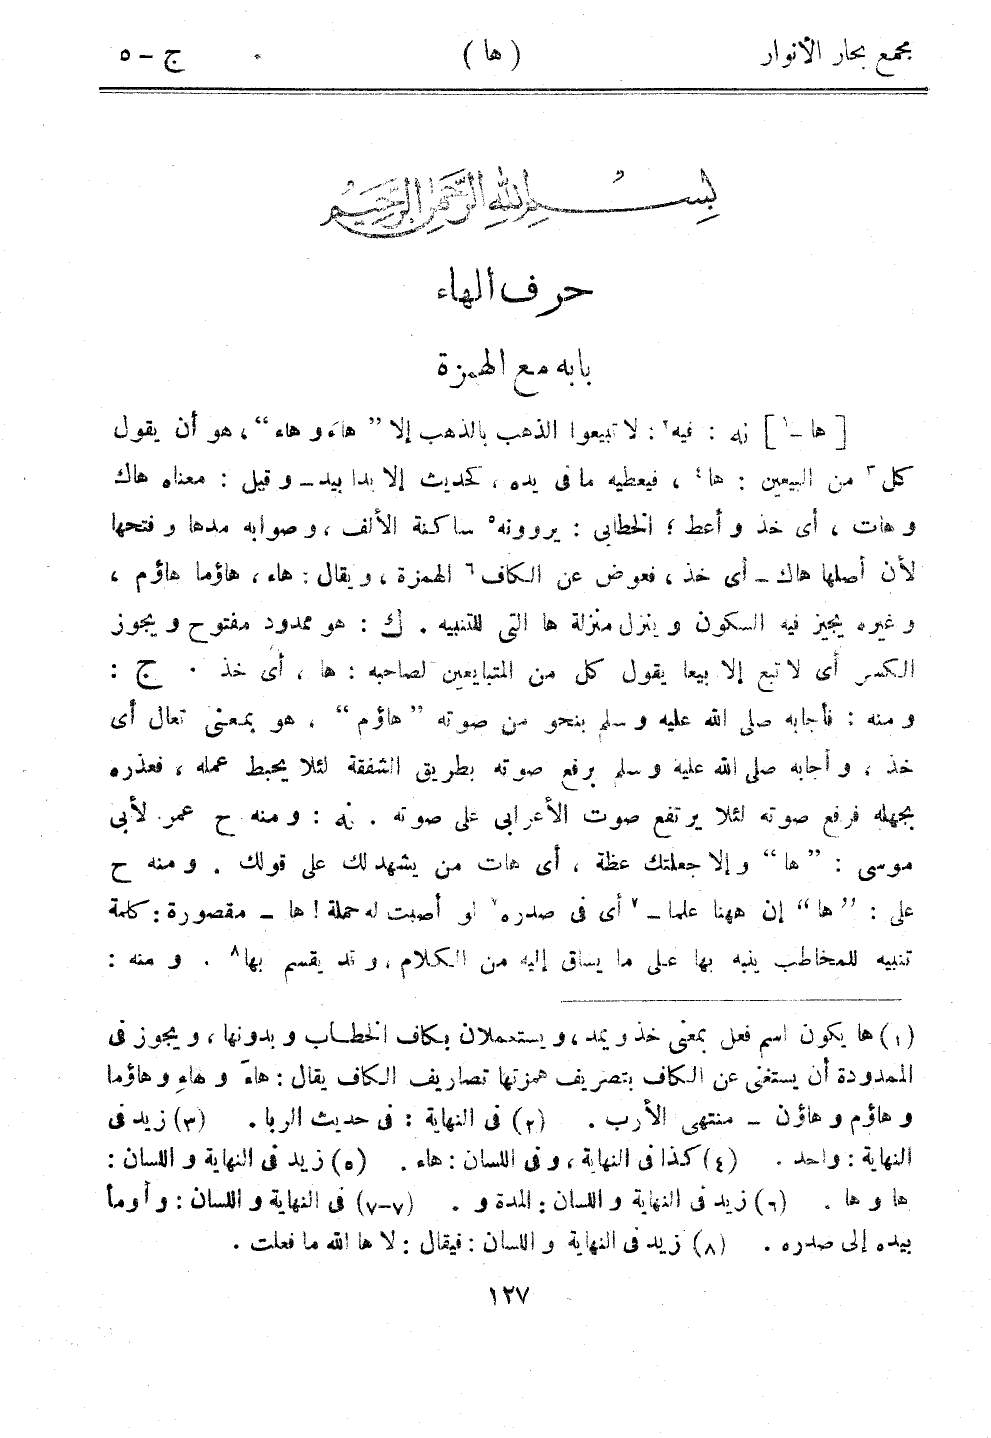 مجمع بحار الأنوار ( ها ) ج - ٥
بسم الله الرحمن الرحيم
حرف الهاء
بابه مع الهمزة
[ ها -١ ] نه : فيه٢ : لا تبيعوا الذهب بالذهب إلا ”هاءَ و هاء“ ، هو أن يقول
كل٣ من البيعين : ها٤ ، فيعطيه ما فى يده ، كحديث إلا يدا بيد – و قيل : معناه هاك
و هات ، أى خذ و أعط ؛ الخطابى : يروونه٥ ساكنة الألف ، و صوابه مدها و فتحها
لأن أصلها هاك – أى خذ ، فعوض عن الكاف٦ الهمزة ، و يقال : هاء ، هاؤما هاؤم ،
و غيره يجيز فيه السكون و ينزل منزلة ها التى للتنبيه . ك : هو ممدود مفتوح و يجوز
الكسر أى لا تبع إلا بيعا يقول كل من المتبايعين لصاحبه : ها ، أى خذ . ج :
و منه : فأجابه صلى الله عليه و سلم بنحو من صوته ”هاؤم“ ، هو بمعنى تعال أى
خذ ، و أجابه صلى الله عليه و سلم برفع صوته بطريق الشفقة لئلا يحبط عمله ، فعذره
بجهله فرفع صوته لئلا يرتفع صوت الأعرابى على صوته . نه : و منه ح عمر لأبى
موسى : ”ها“ و إلا جعلتك عظة ، أى هات من يشهد لك على قولك . و منه ح
على : ”ها“ إن ههنا علما –٧ أى فى صدره٧ لو أصبت له حملة ! ها – مقصورة : كلمة
تنبيه للمخاطب ينبه بها على ما يساق إليه من الكلام ، و قد يقسم بها٨ . و منه :
(١) ها يكون اسم فعل بمعنى خذ و يمد ، و يستعملان بكاف الخطاب و بدونها ، و يجوز فى
الممدودة أن يستغنى عن الكاف بتصريف همزتها تصاريف الكاف يقال : هاءَ و هاءِ و هاؤما
و هاؤم و هاؤن – منتهى الأرب . (٢) فى النهاية : فى حديث الربا . (٣) زيد فى
النهاية : واحد . (٤) كذا فى النهاية ، و فى اللسان : هاء . (٥) زيد فى النهاية و اللسان :
ها و ها . (٦) زيد فى النهاية و اللسان : المدة و . (٧-٧) فى النهاية و اللسان : و أومأ
بيده إلى صدره . (٨) زيد فى النهاية و اللسان : فيقال : لا ها الله ما فعلت .
١٢٧